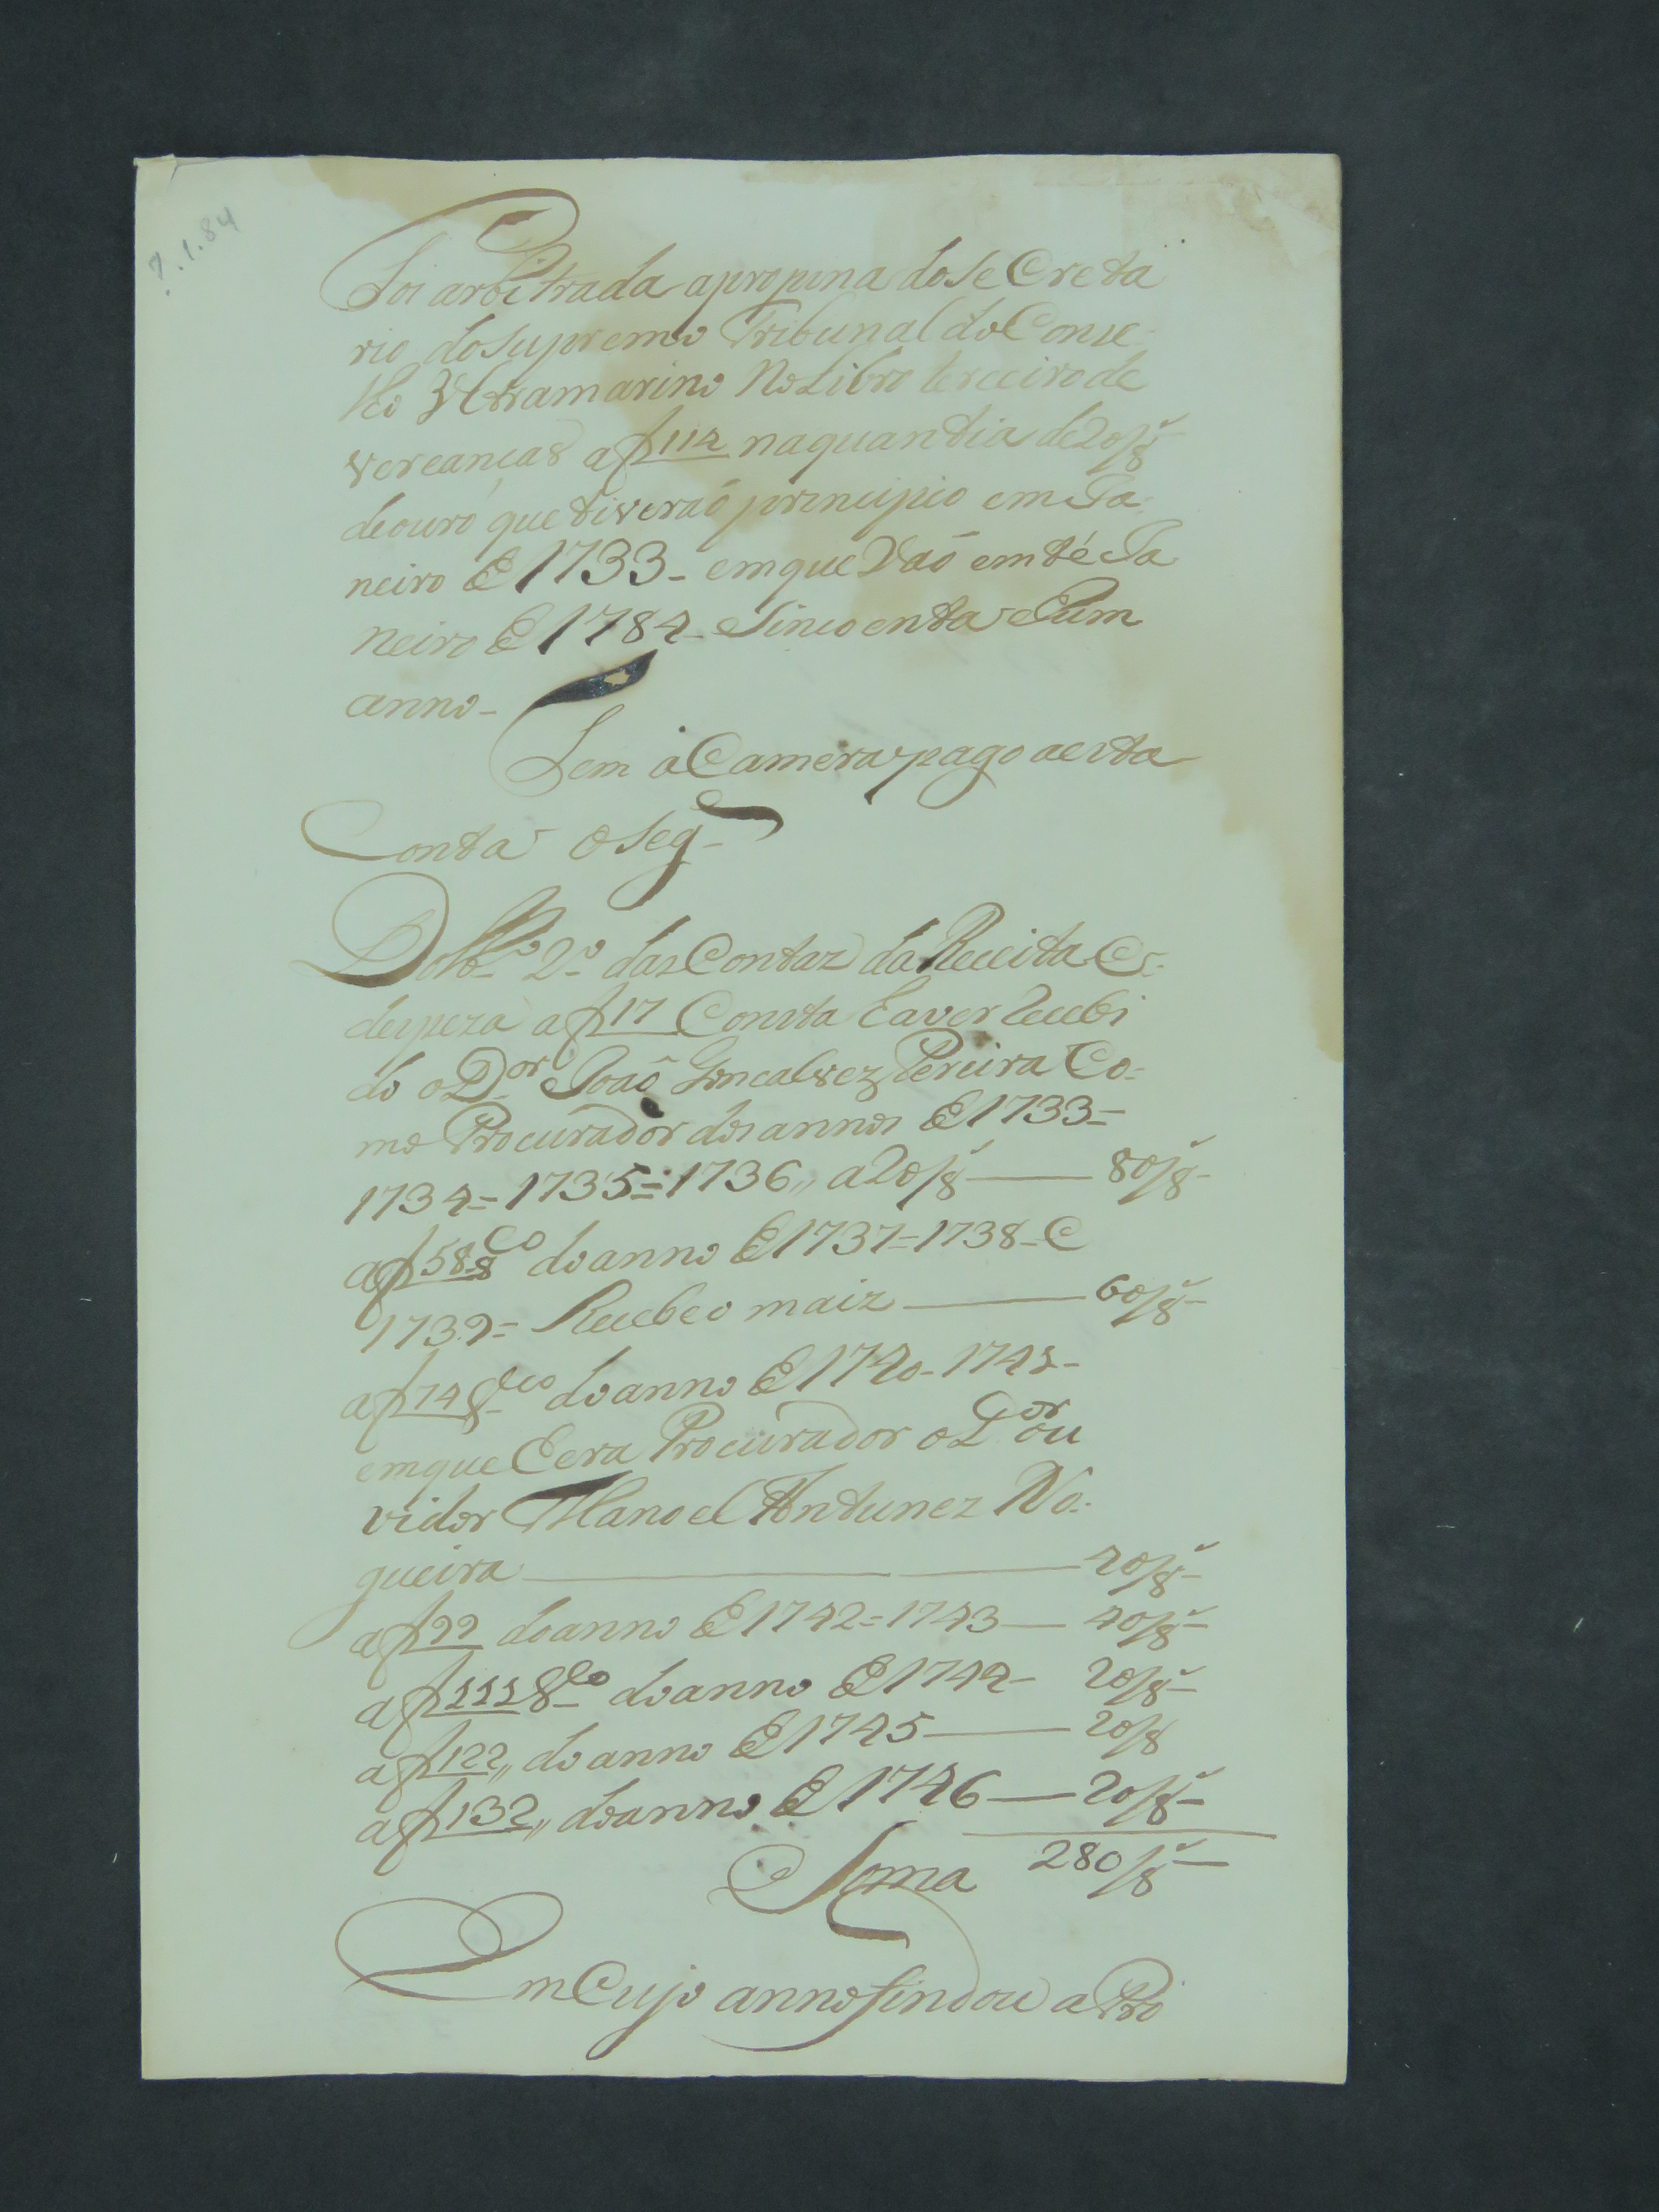 ?.1.84
Foi arbitrada apropina do SeCreta
rio do Supremo Tribunal do Conse-
lho Vltramarino No Libro terceiro de
vereanças a f 114 naquantia de 20/8
de ouro que tiveraõ principio em Ja-
neiro de 1733- em que Vaõ em té Ja
neiro de 1784- Sincoenta e hum
anno-
Tem a Camera pago a esta
Conta o seg-
Do Lo 2º das Contaz da Receita e
despeza a f 17 Consta haver recebi
do o Dor Joaõ Goncalvez Pereira Co-
mo Procurador dos annos de 1733=
1734=1735=1736,, a 20/8 — 80/8-
a f 58 do anno de 1737=1738-e
1739= Recebeo maiz — 60/8-
a f 74 do anno de 1740-1741-
em que hera Procurador o Dor ou
vidor Manoel Antunez No-
gueira — 40/8-
a f 99 do anno de 1742=1743 — 40/8-
a f 111 do anno de 1744- 20/8-
a f 122,, do anno de 1745 — 20/8
a f 132,, do anno de 1746 — 20/8-
Soma 280/8-
Em Cujo anno findou a Pro